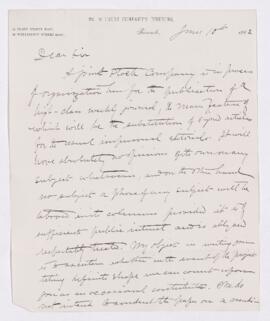 Dear Sir
A Joint Stock Company is in process
of organization for the publication of a
high-class weekly journal, a main feature of
which will be the substitution of signed articles
for the usual impersonal editorials. It will
have absolutely no opinions of its own on any
subject whatsoever, and on the other hand
no subject or phase of any subject will be
its columns provided it is of
sufficient public interest and is ably and
respectfully treated. My object in writing you
is to ascertain whether in the event of the project
taking definite shape we can count upon
you as an occasional contributor. We do
not intend to conduct the paper on a